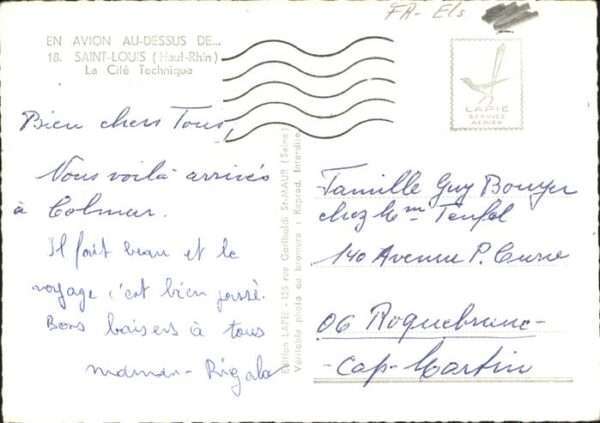 FR- Els
EN AVION AU-DESSUS DE...
18. SAINT-LOUIS (Haut-Rhin)
La Cité Technique
LAPIE
SERVICE
AÉRIEN
Bien chers Tous,
Nous voilà arrivés
à Colmar.
Il fait beau et le
voyage c'est bien passé.
Bons baisers à tous
maman-
Edition LAPIE - 155 rue Garibaldi St-MAUR (Seine)
Véritable photo au bromure : Reprod. Interdite
Famille Guy Bouyer
chez Mme Teufel
140 Avenue P. Curie
06 Roquebrune-
-Cap-Martin